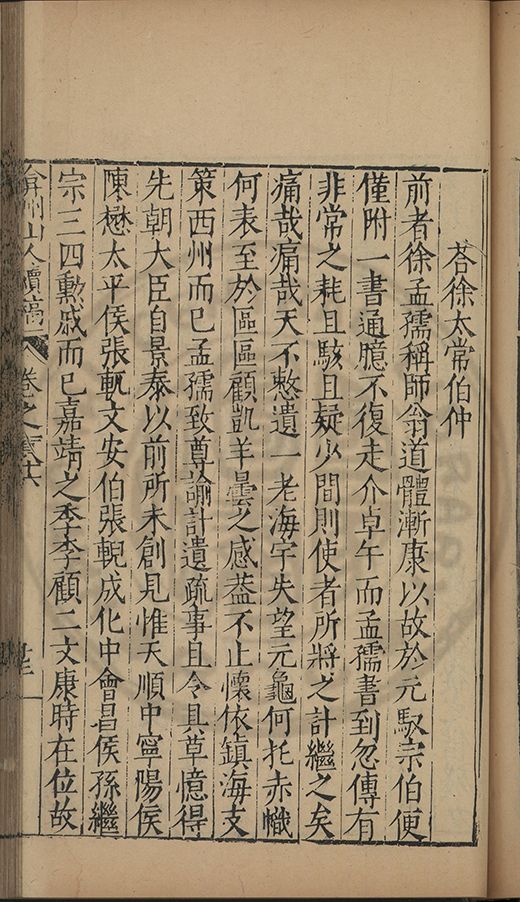 荅徐太常伯仲
前者徐孟孺稱師翁道體漸康以故於元馭宗伯便
僅附一書通臆不復走介卓午而孟孺書到忽傳有
非常之耗且駭且疑少間則使者所將之訃繼之矣
痛哉痛哉天不憗遺一老海宇失望元龜何托赤幟
何表至於區區顧凱羊曇之感葢不止懷依鎮海支
策西州而已孟孺致尊諭訃遺疏事且令且草憶得
先朝大臣自景泰以前所未創見惟天順中寧陽侯
陳懋太平侯張軏文安伯張輗成化中會昌侯孫繼
宗三四勲戚而已嘉靖之季李顧二文康時在位故
弇州山人續稿 卷之 廿三